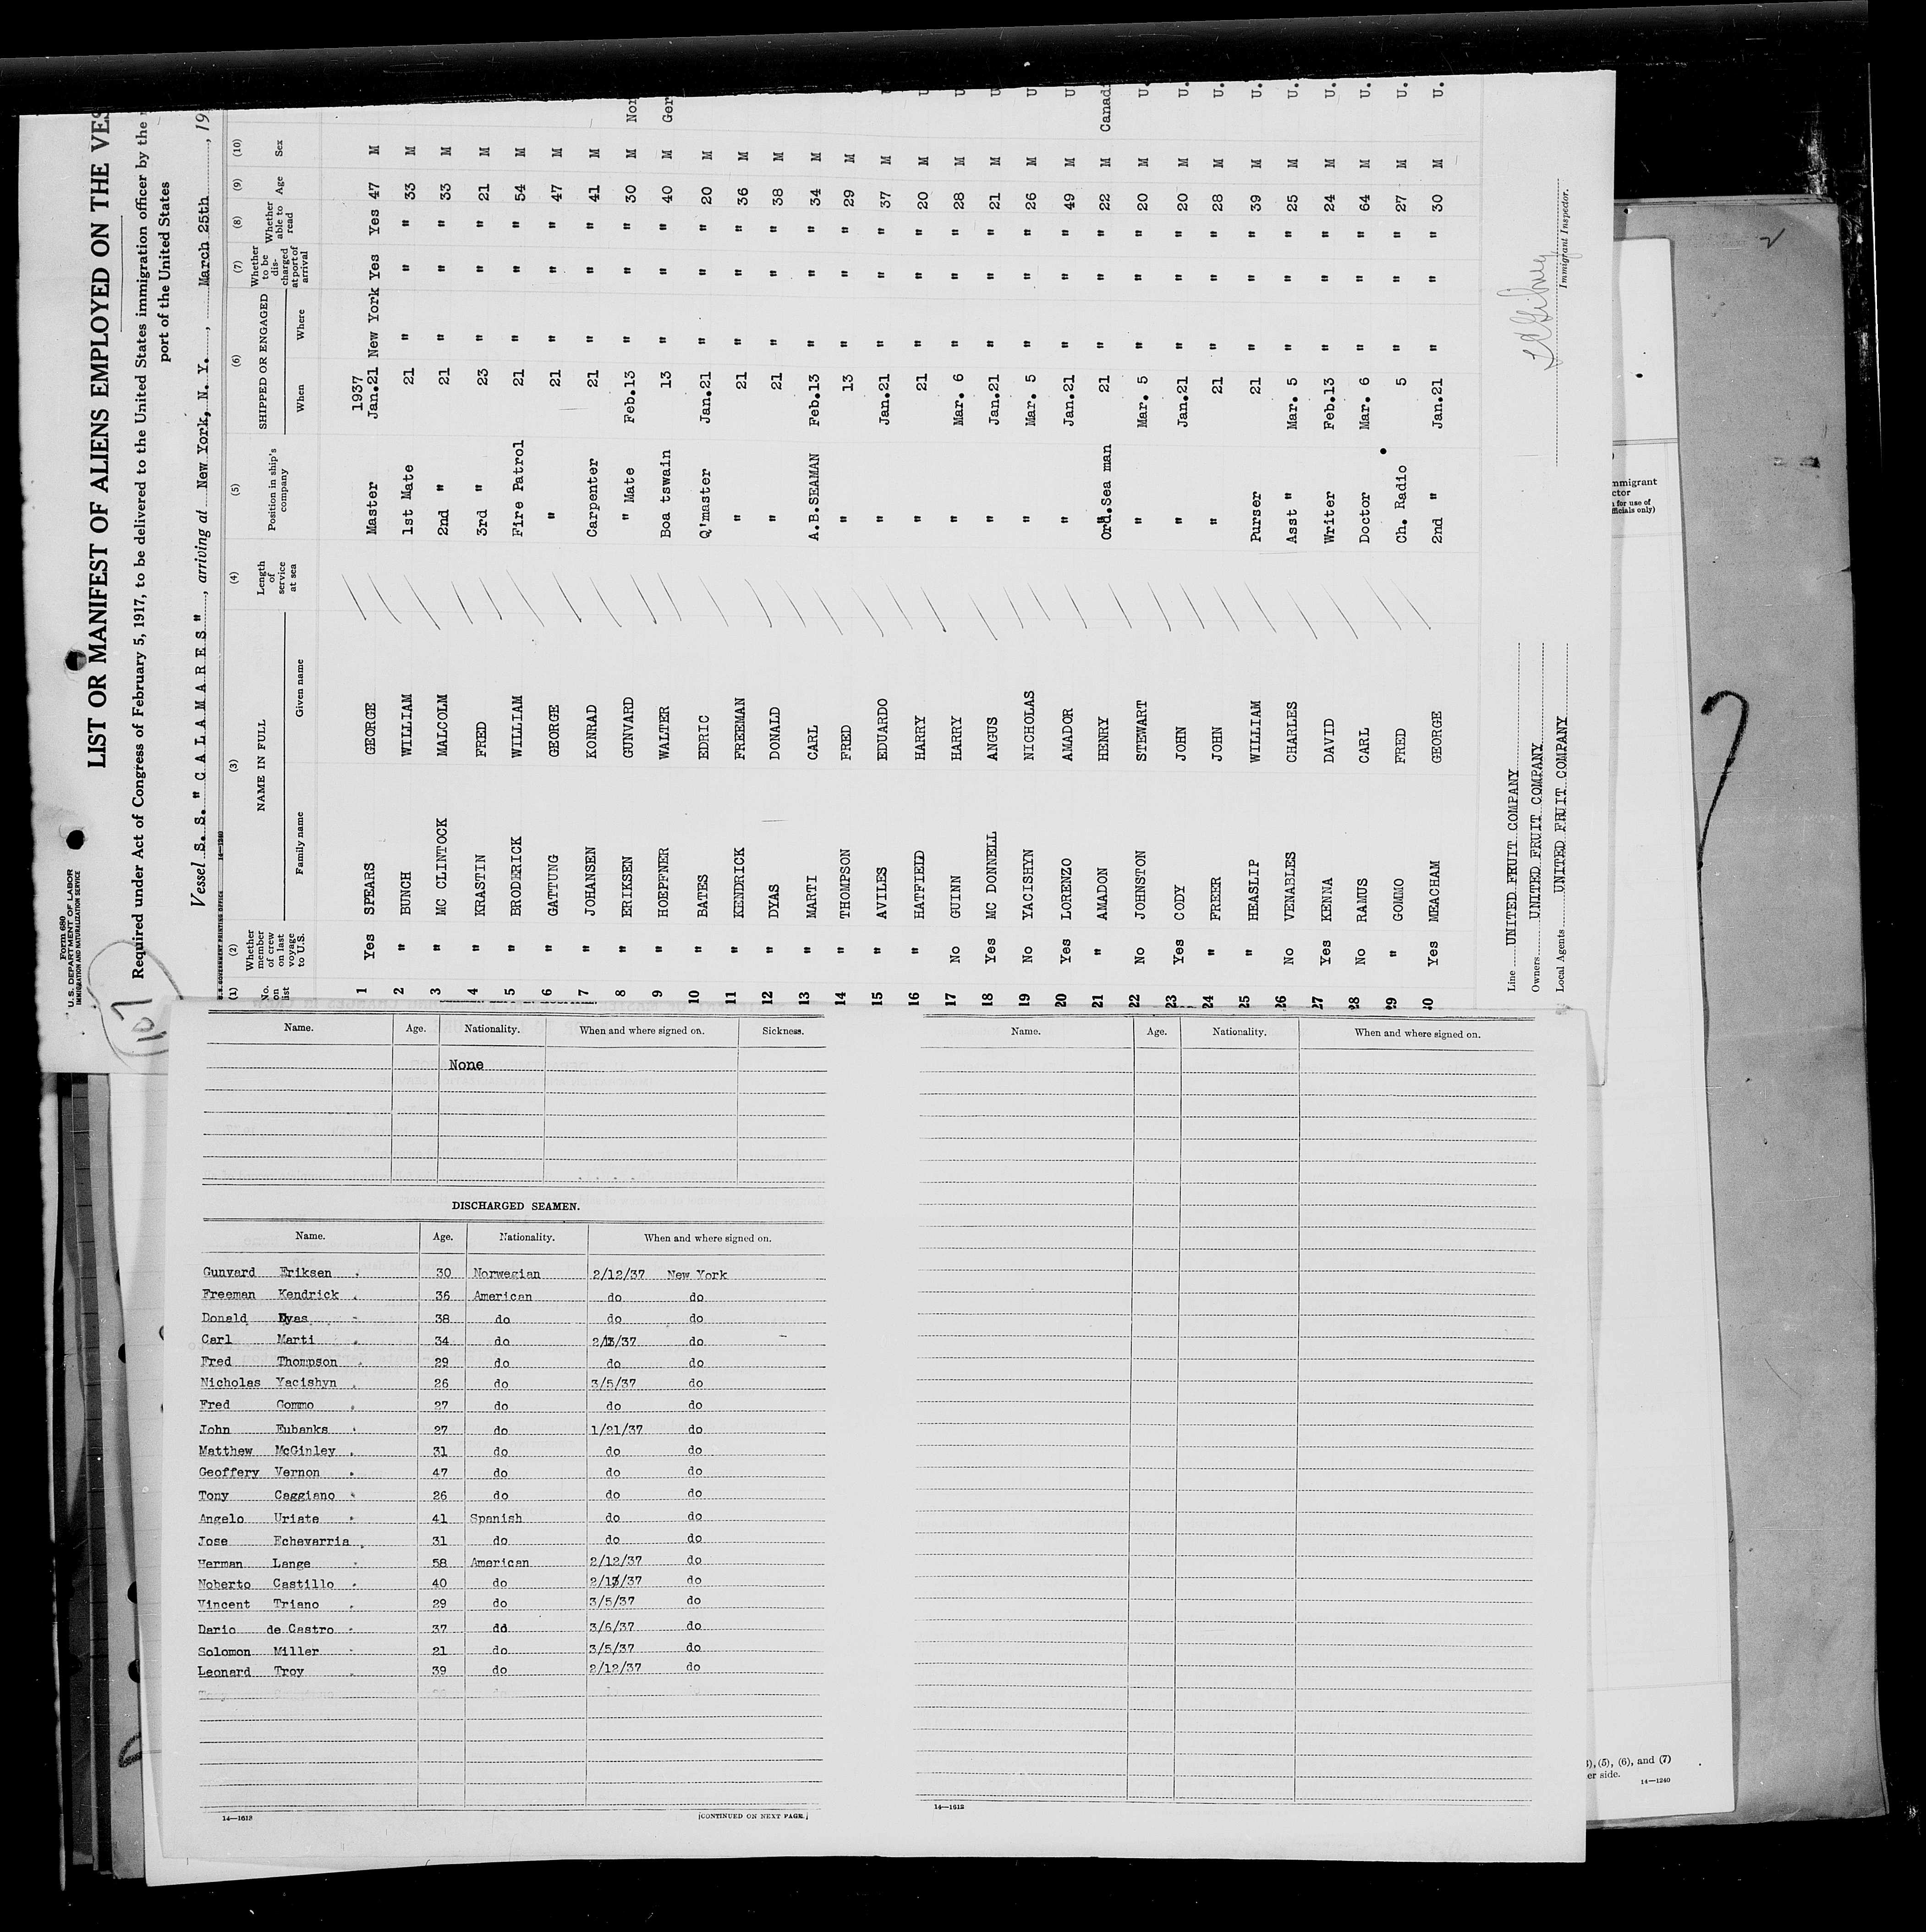 Form 680
U. S. DEPARTMENT OF LABOR
IMMIGRATION AND NATURALIZATION SERVICE
LIST OR MANIFEST OF ALIENS EMPLOYED ON THE VES
Required under Act of Congress of February 5, 1917, to be delivered to the United States immigration officer by the
port of the United States
Vessel S. S. " C A L A M A R E S " , arriving at New York, N. Y. , March 25th , 19
U. S. GOVERNMENT PRINTING OFFICE 14—1240
(1) (2) (3) (4) (5) (6) (7) (8) (9) (10)
No. on list Whether member of crew on last voyage to U. S. NAME IN FULL Family name Given name Length of service at sea Position in ship's company SHIPPED OR ENGAGED When Where Whether to be discharged at port of arrival Whether able to read Age Sex
1937
1 Yes SPEARS GEORGE Master Jan.21 New York Yes Yes 47 M
2 " BUNCH WILLIAM 1st Mate 21 " " " 33 M
3 " MC CLINTOCK MALCOLM 2nd " 21 " " " 33 M
4 " KRASTIN FRED 3rd " 23 " " " 21 M
5 " BRODERICK WILLIAM Fire Patrol 21 " " " 54 M
6 " GATTUNG GEORGE " 21 " " " 47 M
7 " JOHANSEN KONRAD Carpenter 21 " " " 41 M
8 " ERIKSEN GUNVARD " Mate Feb.13 " " " 30 M Nor
9 " HOEPFNER WALTER Boa tswain 13 " " " 40 M Ger
10 " BATES EDRIC Q'master Jan.21 " " " 20 M
11 " KENDRICK FREEMAN " 21 " " " 36 M
12 " DYAS DONALD " 21 " " " 38 M
13 " MARTI CARL A.B.SEAMAN Feb.13 " " " 34 M
14 " THOMPSON FRED " 13 " " " 29 M
15 " AVILES EDUARDO " Jan.21 " " " 37 M U
16 " HATFIELD HARRY " 21 " " " 20 M U
17 No GUINN HARRY " Mar. 6 " " " 28 M U
18 Yes MC DONNELL ANGUS " Jan.21 " " " 21 M U
19 No YACISHYN NICHOLAS " Mar. 5 " " " 26 M U
20 Yes LORENZO AMADOR " Jan.21 " " " 49 M U
21 " AMADON HENRY Ord.Sea man 21 " " " 22 M Canadi
22 No JOHNSTON STEWART " Mar. 5 " " " 20 M U.
23 Yes CODY JOHN " Jan.21 " " " 20 M U.
24 " FREER JOHN " 21 " " " 28 M U.
25 " HEASLIP WILLIAM Purser 21 " " " 39 M U.
26 No VENABLES CHARLES Asst " Mar. 5 " " " 25 M U.
27 Yes KENNA DAVID Writer Feb.13 " " " 24 M U.
28 No RAMUS CARL Doctor Mar. 6 " " " 64 M U.
29 " GOMMO FRED Ch. Radio 5 " " " 27 M U.
30 Yes MEACHAM GEORGE 2nd " Jan.21 " " " 30 M U.
Line UNITED FRUIT COMPANY
Owners UNITED FRUIT COMPANY
Local Agents UNITED FRUIT COMPANY
Immigrant Inspector.
107
Name. Age. Nationality. When and where signed on. Sickness.
None
DISCHARGED SEAMEN.
Name. Age. Nationality. When and where signed on.
Gunvard Eriksen 30 Norwegian 2/12/37 New York
Freeman Kendrick 36 American do do
Donald Dyas 38 do do do
Carl Marti 34 do 2/13/37 do
Fred Thompson 29 do do do
Nicholas Yacishyn 26 do 3/5/37 do
Fred Gommo 27 do do do
John Eubanks 27 do 1/21/37 do
Matthew McGinley 31 do do do
Geoffery Vernon 47 do do do
Tony Caggiano 26 do do do
Angelo Uriate 41 Spanish do do
Jose Echevarria 31 do do do
Herman Lange 58 American 2/12/37 do
Noberto Castillo 40 do 2/13/37 do
Vincent Triano 29 do 3/5/37 do
Dario de Castro 37 dd 3/6/37 do
Solomon Miller 21 do 3/5/37 do
Leonard Troy 39 do 2/12/37 do
14—1612 [CONTINUED ON NEXT PAGE.]
Name. Age. Nationality. When and where signed on.
14—1612
mmigrant
ctor
for use of
fficials only)
), (5), (6), and (7)
er side.
14—1240